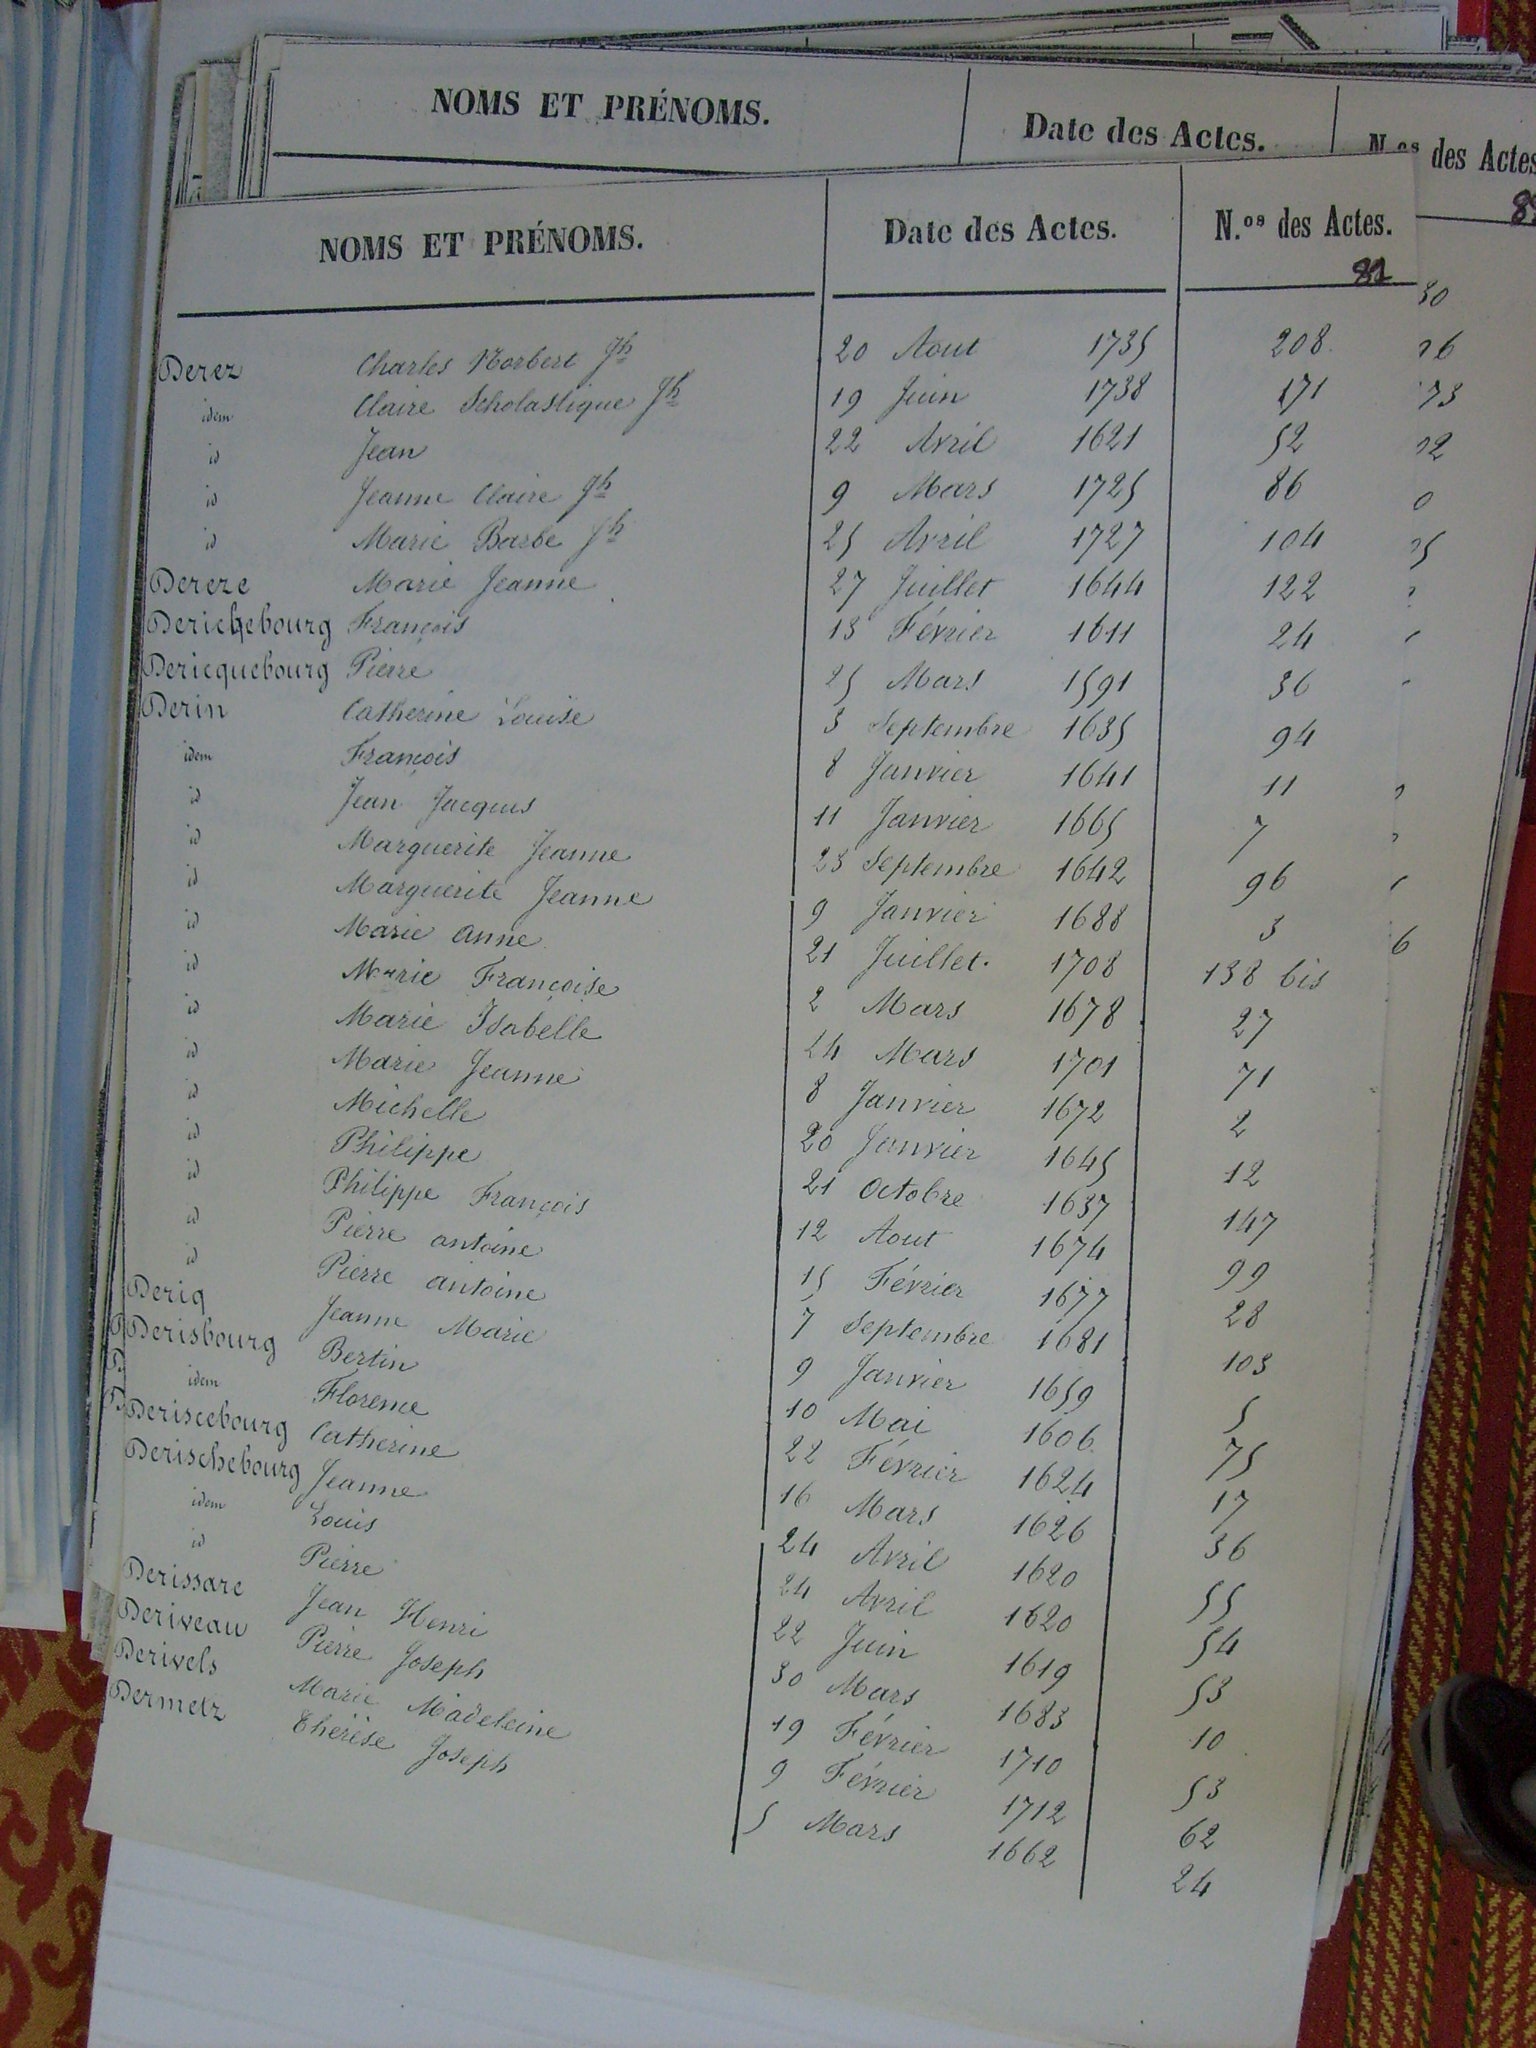 NOMS ET PRÉNOMS. Date des Actes. N.os des Actes
NOMS ET PRÉNOMS. Date des Actes. N.os des Actes.
81
Derez Charles Norbert Jh 20 Aout 1735 208
idem Claire Scholastique Jh 19 Juin 1738 171
id Jean 22 Avril 1621 52
id Jeanne Claire Jh 9 Mars 1725 86
id Marie Barbe Jh 25 Avril 1727 104
Dereze Marie Jeanne 27 Juillet 1644 122
Derichebourg François 13 Février 1611 24
Dericquebourg Pierre 25 Mars 1591 36
Derin Catherine Louise 3 Septembre 1635 94
idem François 8 Janvier 1641 11
id Jean Jacques 11 Janvier 1665 7
id Marguerite Jeanne 23 Septembre 1642 96
id Marguerite Jeanne 9 Janvier 1688 3
id Marie anne 21 Juillet. 1708 138 bis
id Marie Françoise 2 Mars 1678 27
id Marie Isabelle 24 Mars 1701 71
id Marie Jeanne 8 Janvier 1672 2
id Michelle 20 Janvier 1645 12
id Philippe 21 Octobre 1637 147
id Philippe François 12 Aout 1674 99
id Pierre antoine 15 Février 1677 28
id Pierre antoine 7 Septembre 1681 103
Deriq Jeanne Marie 9 Janvier 1659 5
Derisbourg Bertin 10 Mai 1606 75
idem Florence 22 Février 1624 17
Deriscebourg Catherine 16 Mars 1626 36
Derischebourg Jeanne 24 Avril 1620 55
idem Louis 24 Avril 1620 54
id Pierre 22 Juin 1619 53
Derissare Jean Henri 30 Mars 1683 10
Deriveau Pierre Joseph 19 Février 1710 53
Derivels Marie Madeleine 9 Février 1712 62
Dermetz Thérèse Joseph 5 Mars 1662 24